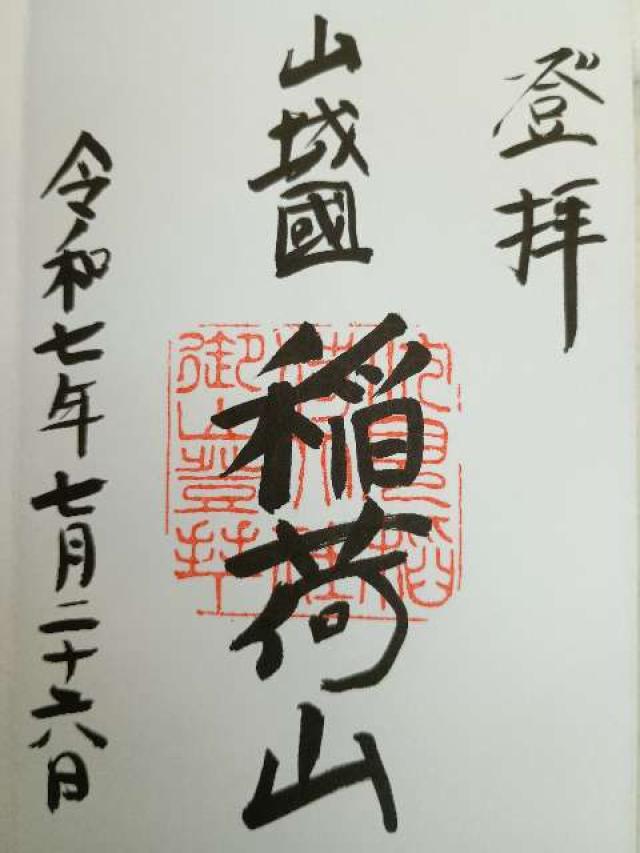 登拝
山城國
稲荷山
令和七年七月二十六日